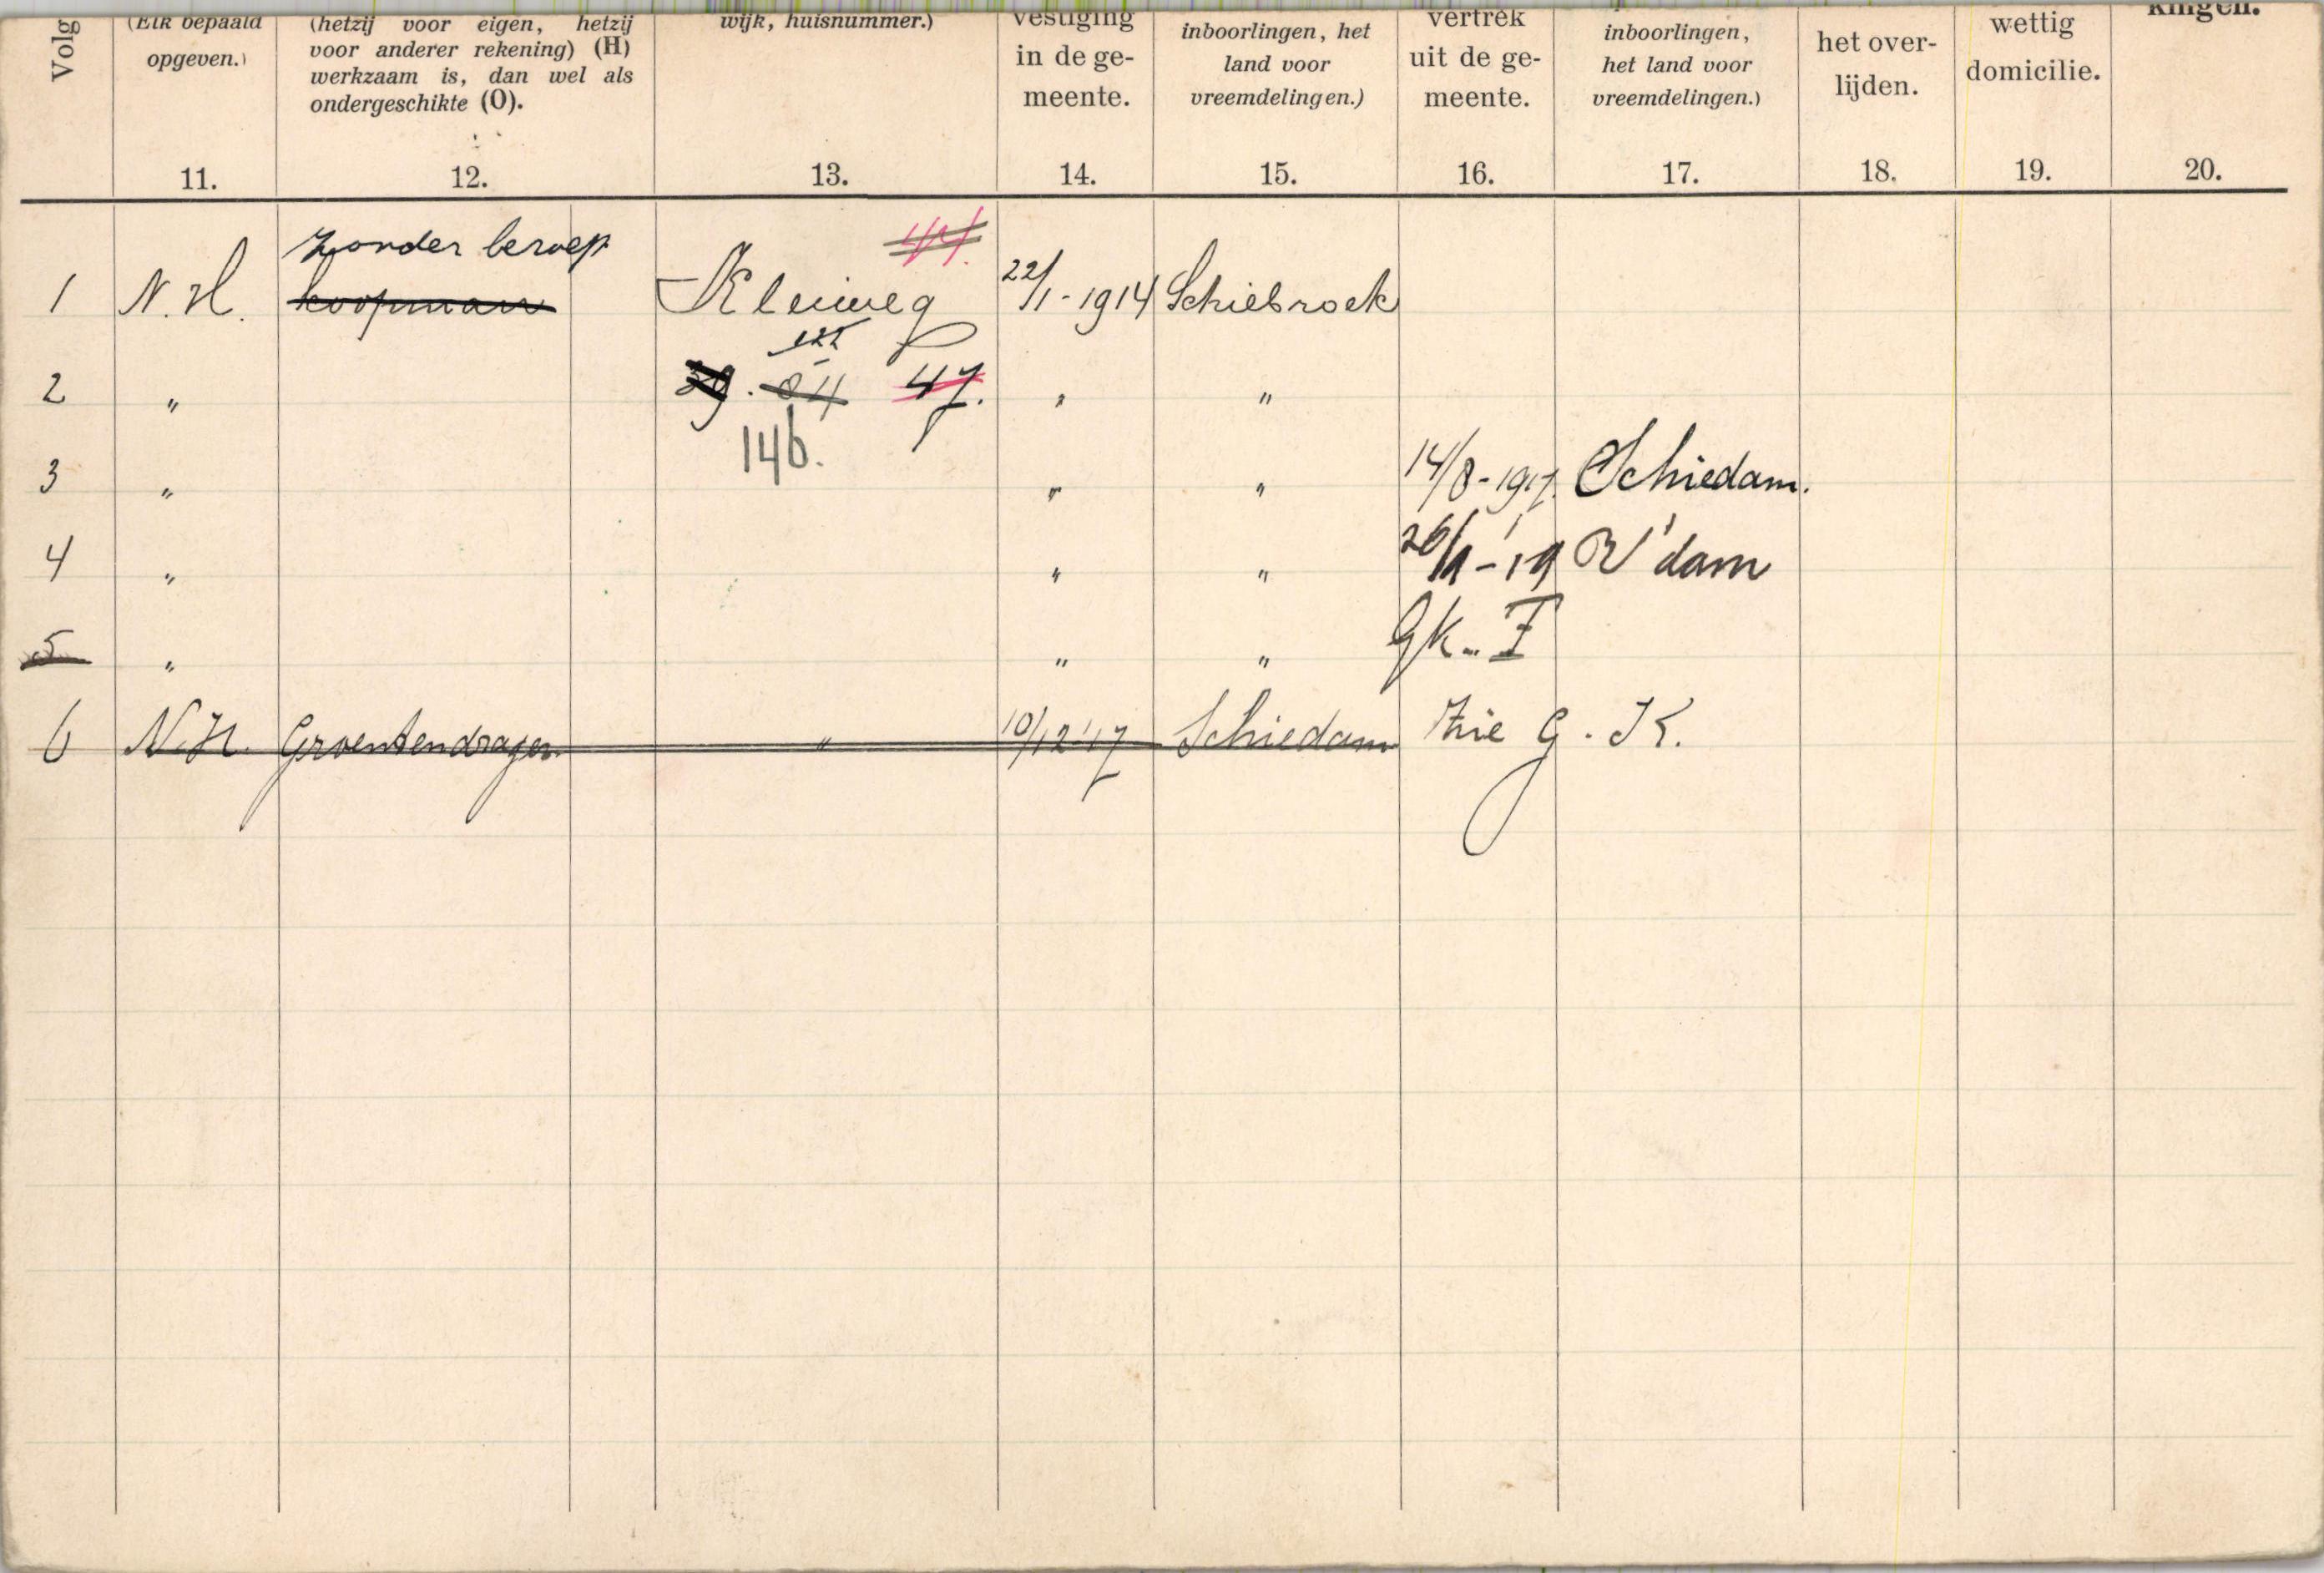 Volg
(Elk bepaald
opgeven.)
11.
(hetzij voor eigen, hetzij
voor anderer rekening) (H)
werkzaam is, dan wel als
ondergeschikte (O).
12.
wijk, huisnummer.)
13.
vestiging
in de ge-
meente.
14.
inboorlingen, het
land voor
vreemdelingen.)
15.
vertrek
uit de ge-
meente.
16.
inboorlingen,
het land voor
vreemdelingen.)
17.
het over-
lijden.
18.
wettig
domicilie.
19.
kingen.
20.
Zonder beroep
1 N.H. koopman Kleiweg 22/1-1914 Schiebroek
2 " 39. 84 47. " "
146.
3 " " " 14/8-1917 Schiedam.
4 " " " 26/11-19 R'dam
5 " " " Gk.. I
6 N.H. Groentendrager " 10/12'17 Schiedam Zie G.K.